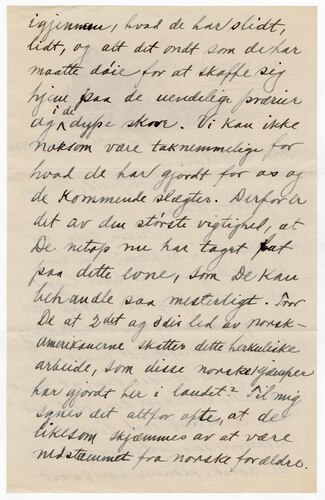 igjennem, hvad de har slidt,
lidt, og alt det ondt som de har
maatte døie for at skaffe sig
hjem paa de uendelige prærier
og i de dype skove. Vi kan ikke
noksom være taknemmelige for
hvad de har gjordt for os og
de kommende slægter. Derfor er
det av den største vigtighet, at
De netop nu har taget fat
paa dette emne, som De kan
behandle saa mesterligt. Tror
De at 2det og 3die led av norsk-
amerikanerne skatter dette herkuliske
arbeide, som disse norske kjæmper
har gjordt her i landet? Til mig
synes det altfor ofte, at de
likesom skjæmmes av at være
nedstammet fra norske forældre.